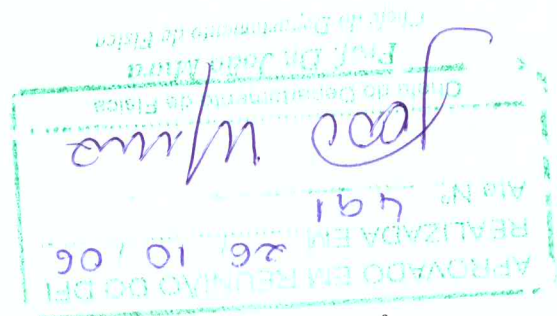 APROVADO EM REUNIÃO DO DFI
REALIZADA EM 26 / 10 / 06
Ata Nº 491
Chefe do Departamento de Física
Prof. Dr. João Mura
Chefe do Departamento de Física